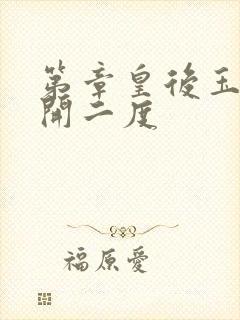 第章皇後玉
開二度
福原愛